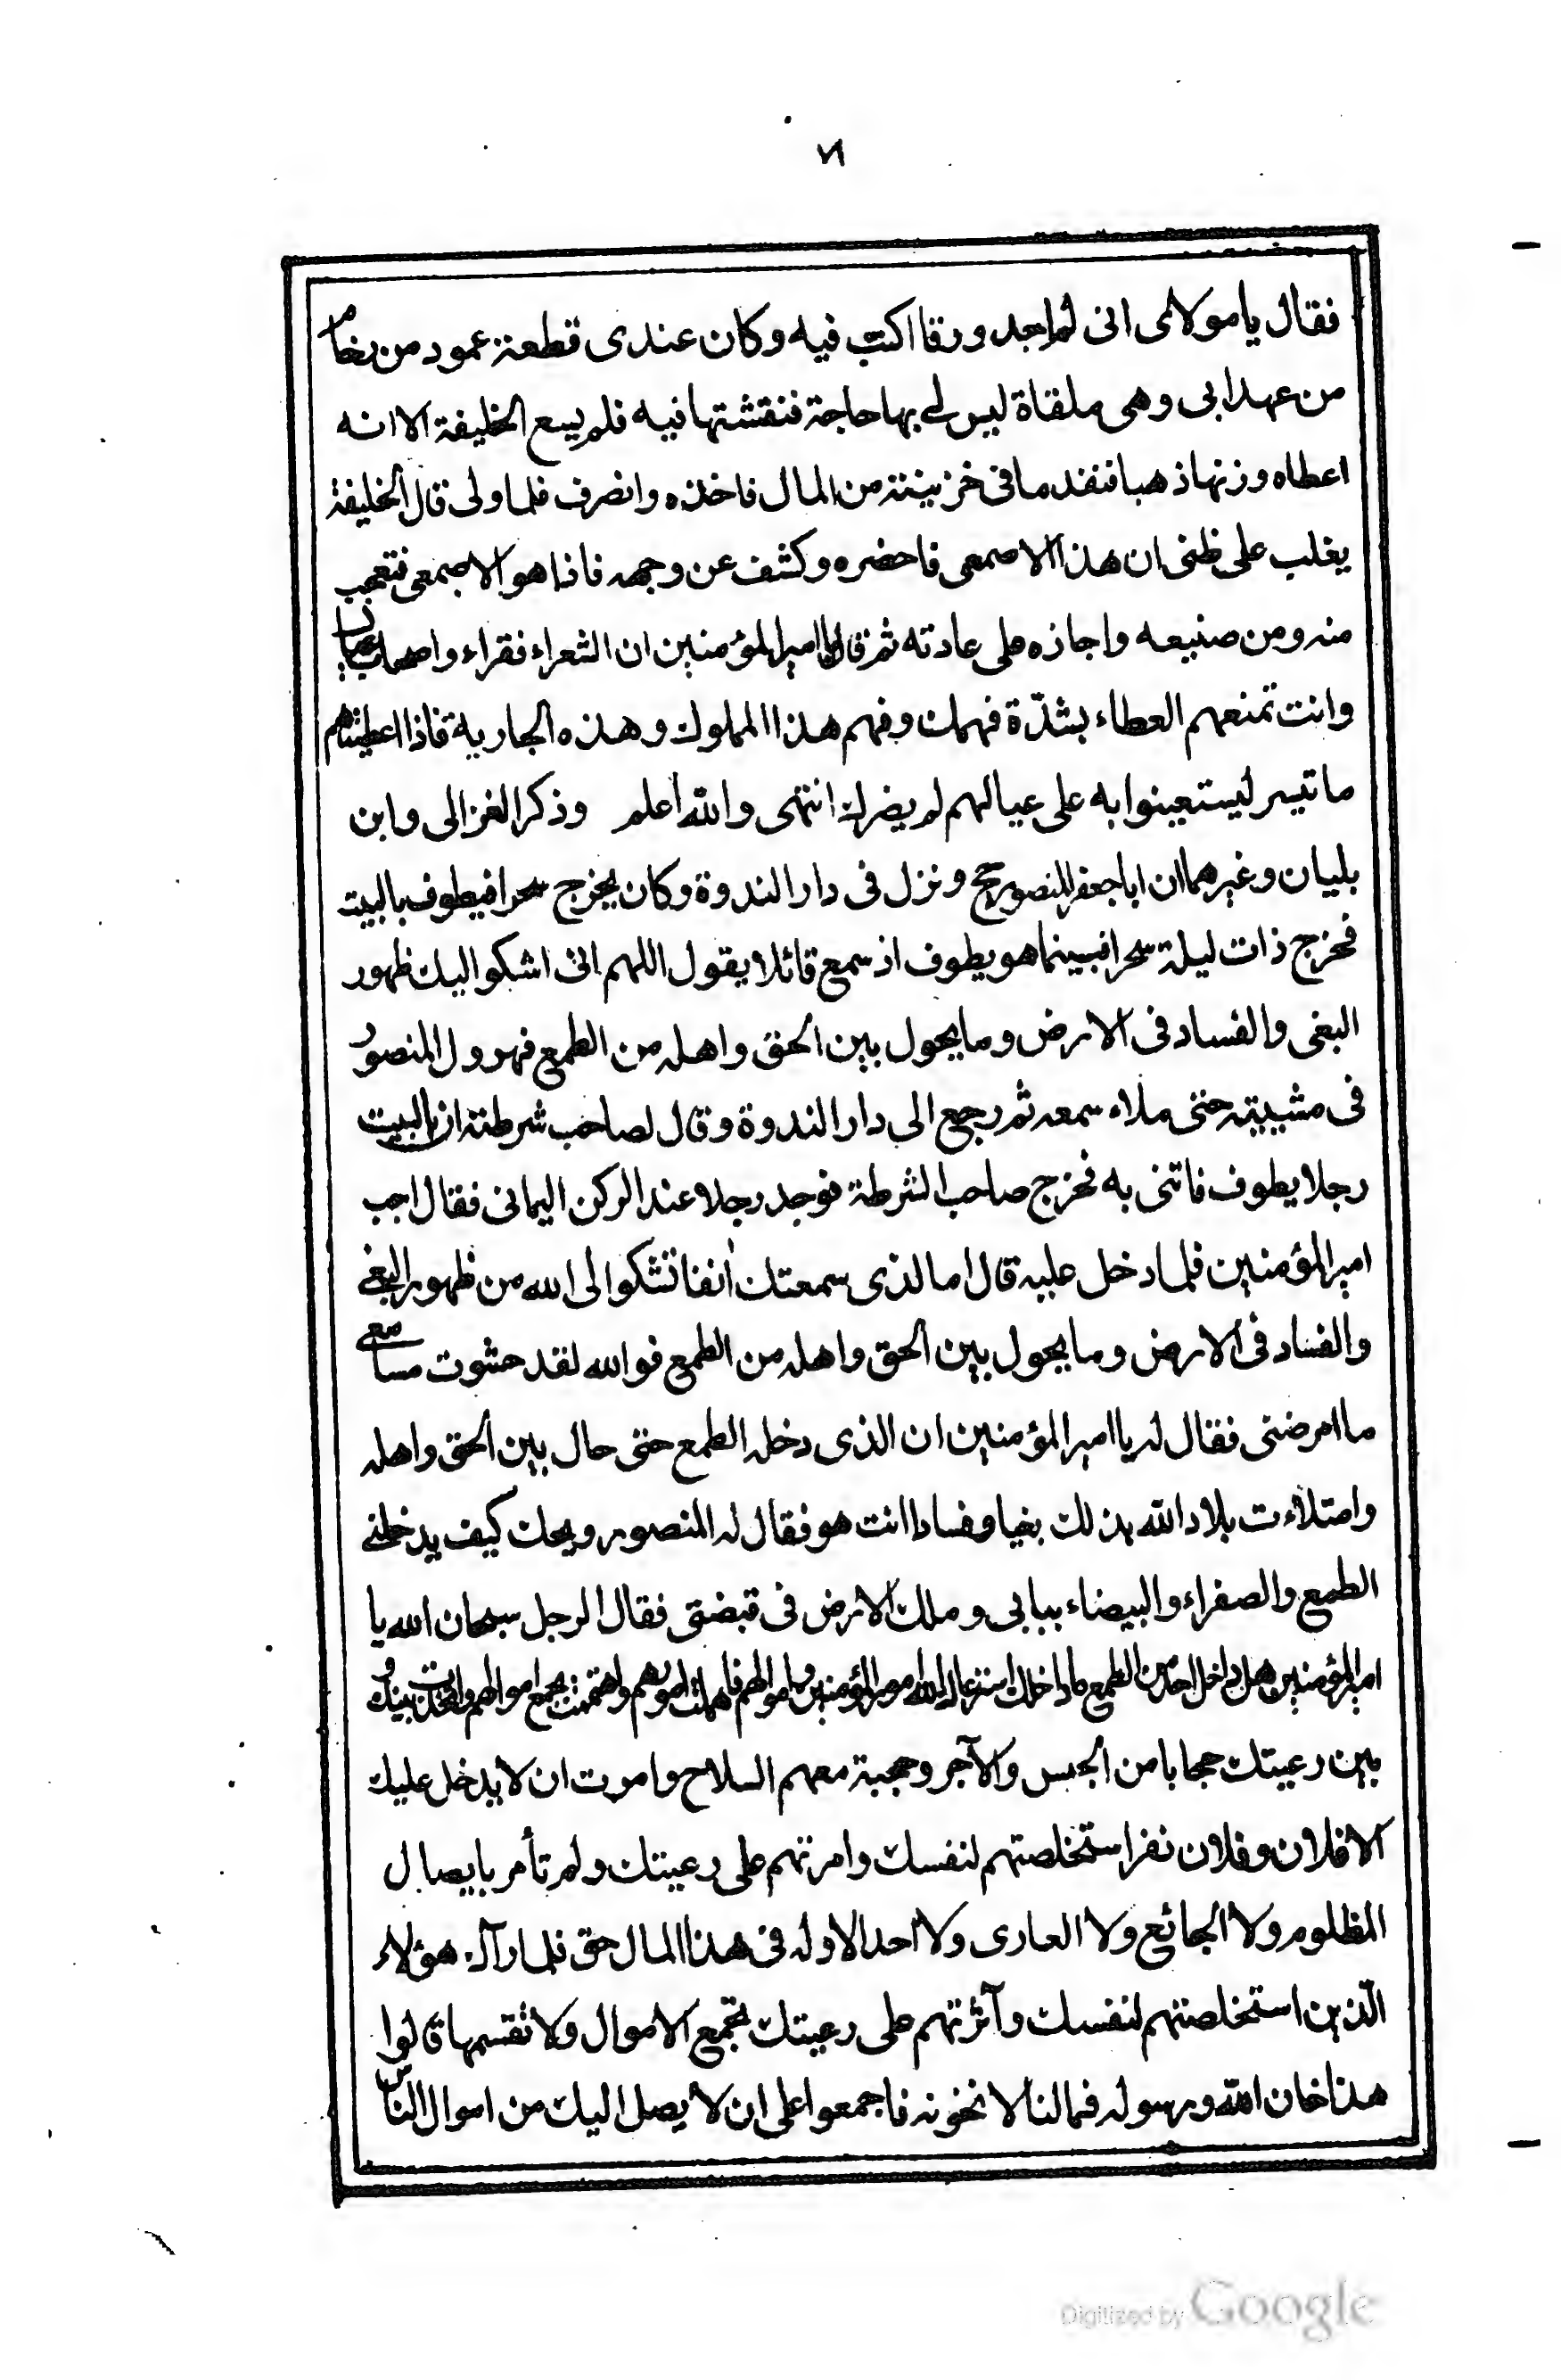 ٧١
فقال يا مولاى انى لم اجد ورقا اكتب فيه وكان عندى قطعة عمود من رخام
من عهد ابى وهى ملقاة ليس لى بها حاجة فنقشتها فيه فلم يسع الخليفة الا انه
اعطاه وزنها ذهبا فنفد ما فى خزينته من المال فاخذه وانصرف فلما ولى قال الخليفة
يغلب على ظنى ان هذا الاصمعى فاحضره وكشف عن وجهه فاذا هو الاصمعى فتعجب
منه ومن صنيعه واجازه على عادته ثم قال يا امير المؤمنين ان الشعراء فقراء واصحاب عيال
وانت تمنعهم العطاء بشدّة فهمك وفهم هذا المملوك وهذه الجارية فاذا اعطيتهم
ما تيسر ليستعينوا به على عيالهم لم يضرك انتهى والله اعلم وذكر الغزالى وابن
بليان وغيرهما ان ابا جعفر المنصور حج ونزل فى دار الندوة وكان يخرج سحرا فيطوف بالبيت
فخرج ذات ليلة سحرا فبينما هو يطوف اذ سمع قائلا يقول اللهم انى اشكوا اليك ظهور
البغى والفساد فى الارض وما يحول بين الحق واهله من الطمع فهرول المنصور
فى مشيته حتى ملاء سمعه ثم رجع الى دار الندوة وقال لصاحب شرطته ان بالبيت
رجلا يطوف فاتنى به فخرج صاحب الشرطة فوجد رجلا عند الركن اليمانى فقال اجب
امير المؤمنين فلما دخل عليه قال اما لذى سمعتك آنفا تشكوا لى الله من ظهور البغى
والفساد فى الارض وما يحول بين الحق واهله من الطمع فوالله لقد حشوت مسامعى
ما امرضنى فقال له يا امير المؤمنين ان الذى دخله الطمع حتى حال بين الحق واهله
وامتلاءت بلاد الله بذلك بغيا وفسادا انت هو فقال له المنصور ويحك كيف يدخلنى
الطمع والصفراء والبيضاء ببابى وملك الارض فى قبضتى فقال الرجل سبحان الله يا
امير المؤمنين هل داخل احدا من الطمع ما داخلك استرعاك الله امور المؤمنين واموالهم فاهملت امورهم واهتممت بجمع اموالهم واتخذت بينك و
بين رعيتك حجابا من الجبس والآجر وحجبة معهم السلاح وامرت ان لا يدخل عليك
الا فلان وفلان نفر استخلصتهم لنفسك وامرتهم على رعيتك ولم تأمر بايصال
المظلوم ولا الجائع ولا العارى ولا احد الا وله فى هذا المال حق فلما رآك هؤلاء
الّذين استخلصتهم لنفسك وآثرتهم على رعيتك تجمع الاموال ولا تقسمها قالوا
هذا خان الله ورسوله فما لنا لا نخونه فاجمعوا على ان لا يصل اليك من اموال الناس
Digitized by Google